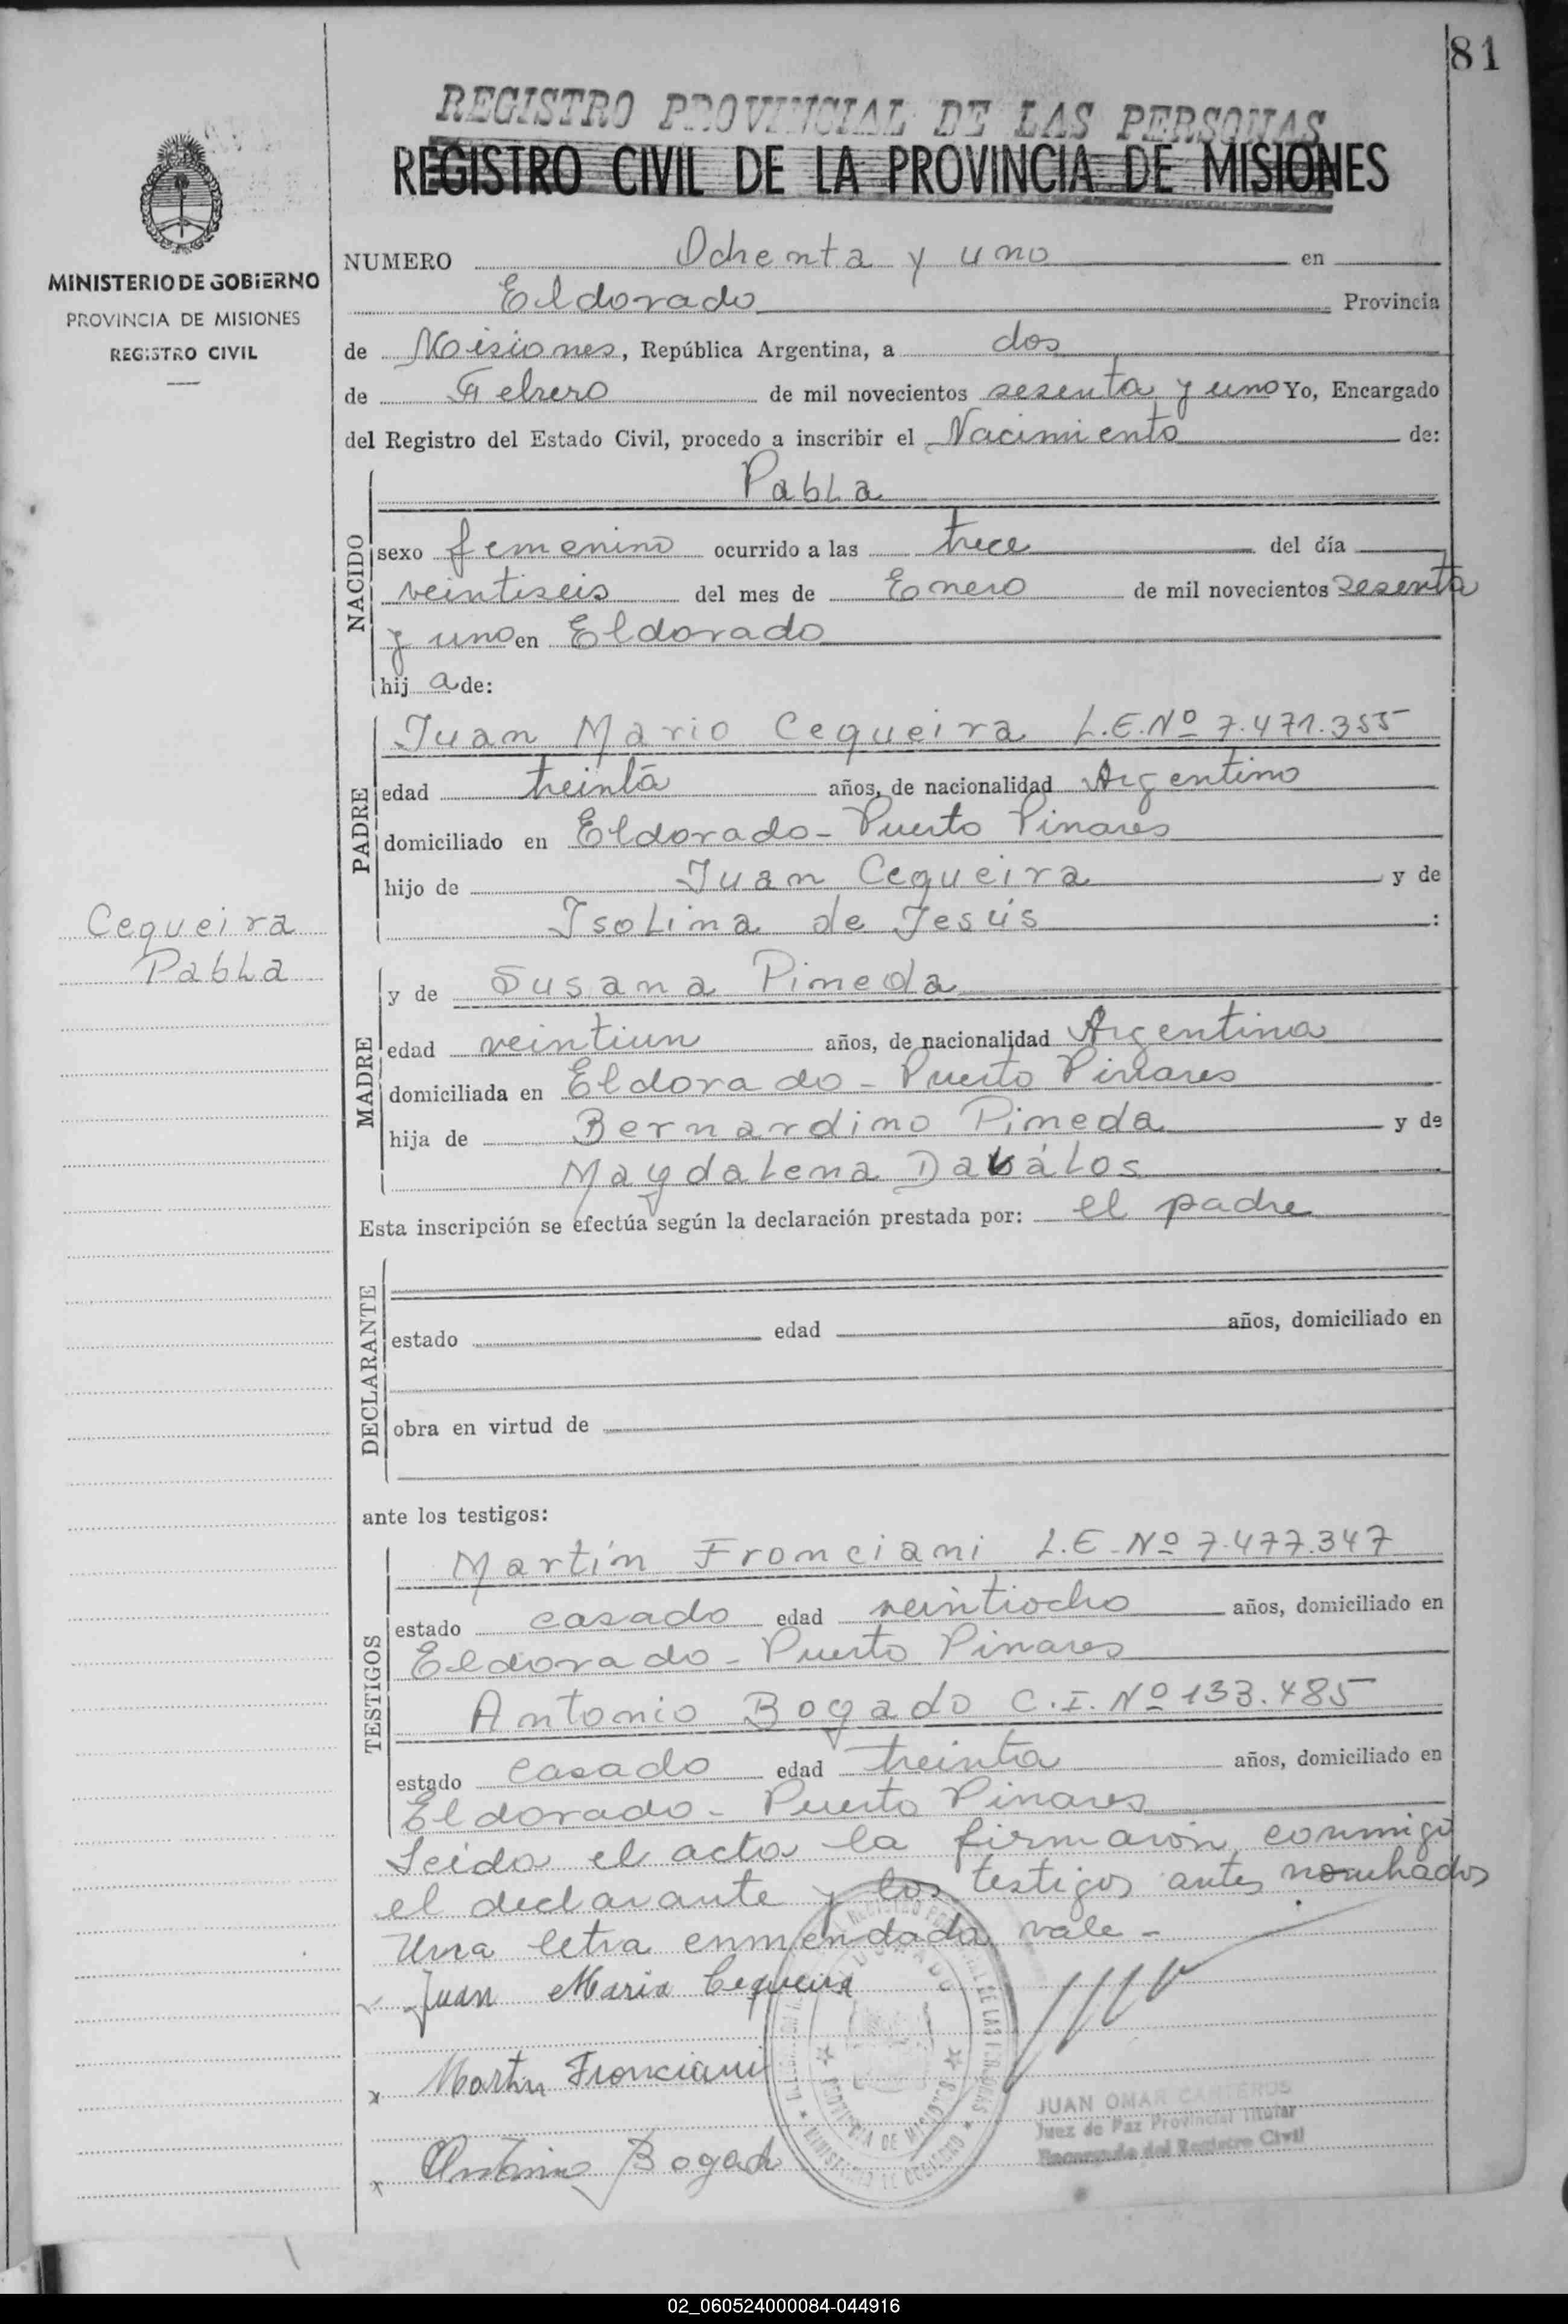 81
REGISTRO PROVINCIAL DE LAS PERSONAS
REGISTRO CIVIL DE LA PROVINCIA DE MISIONES
MINISTERIO DE GOBIERNO
PROVINCIA DE MISIONES
REGISTRO CIVIL
NUMERO Ochenta y uno en
Eldorado Provincia
de Misiones, República Argentina, a dos
de Febrero de mil novecientos sesenta y uno Yo, Encargado
del Registro del Estado Civil, procedo a inscribir el Nacimiento de:
NACIDO
Pabla
sexo femenino ocurrido a las trece del día
veintiseis del mes de Enero de mil novecientos sesenta
y uno en Eldorado
hij a de:
PADRE
Juan Mario Cequeira L.E.Nº 7.471.355
edad treinta años, de nacionalidad Argentino
domiciliado en Eldorado - Puerto Pinares
hijo de Juan Cequeira y de
Isolina de Jesús :
Cequeira
Pabla
MADRE
y de Susana Pimeda
edad veintiun años, de nacionalidad Argentina
domiciliada en Eldorado - Puerto Pinares
hija de Bernardino Pimeda y de
Magdalena Daválos
Esta inscripción se efectúa según la declaración prestada por: el padre
DECLARANTE
estado edad años, domiciliado en
obra en virtud de
ante los testigos:
TESTIGOS
Martín Fronciani L.E. Nº 7.477.347
estado casado edad veintiocho años, domiciliado en
Eldorado - Puerto Pinares
Antonio Bogado C.I. Nº 133.485
estado casado edad treinta años, domiciliado en
Eldorado - Puerto Pinares
Leida el acta la firmaron, conmigo
el declarante y los testigos antes
Una letra enmendada vale -
Juan Mario Cequeira
Martin Fronciani
Antonio Bogado
PROVINCIA DE MISIONES
MINISTERIO DE GOBIERNO
JUAN OMAR CANTEROS
Juez de Paz Provincial Titular
Encargado del Registro Civil
02_060524000084-044916